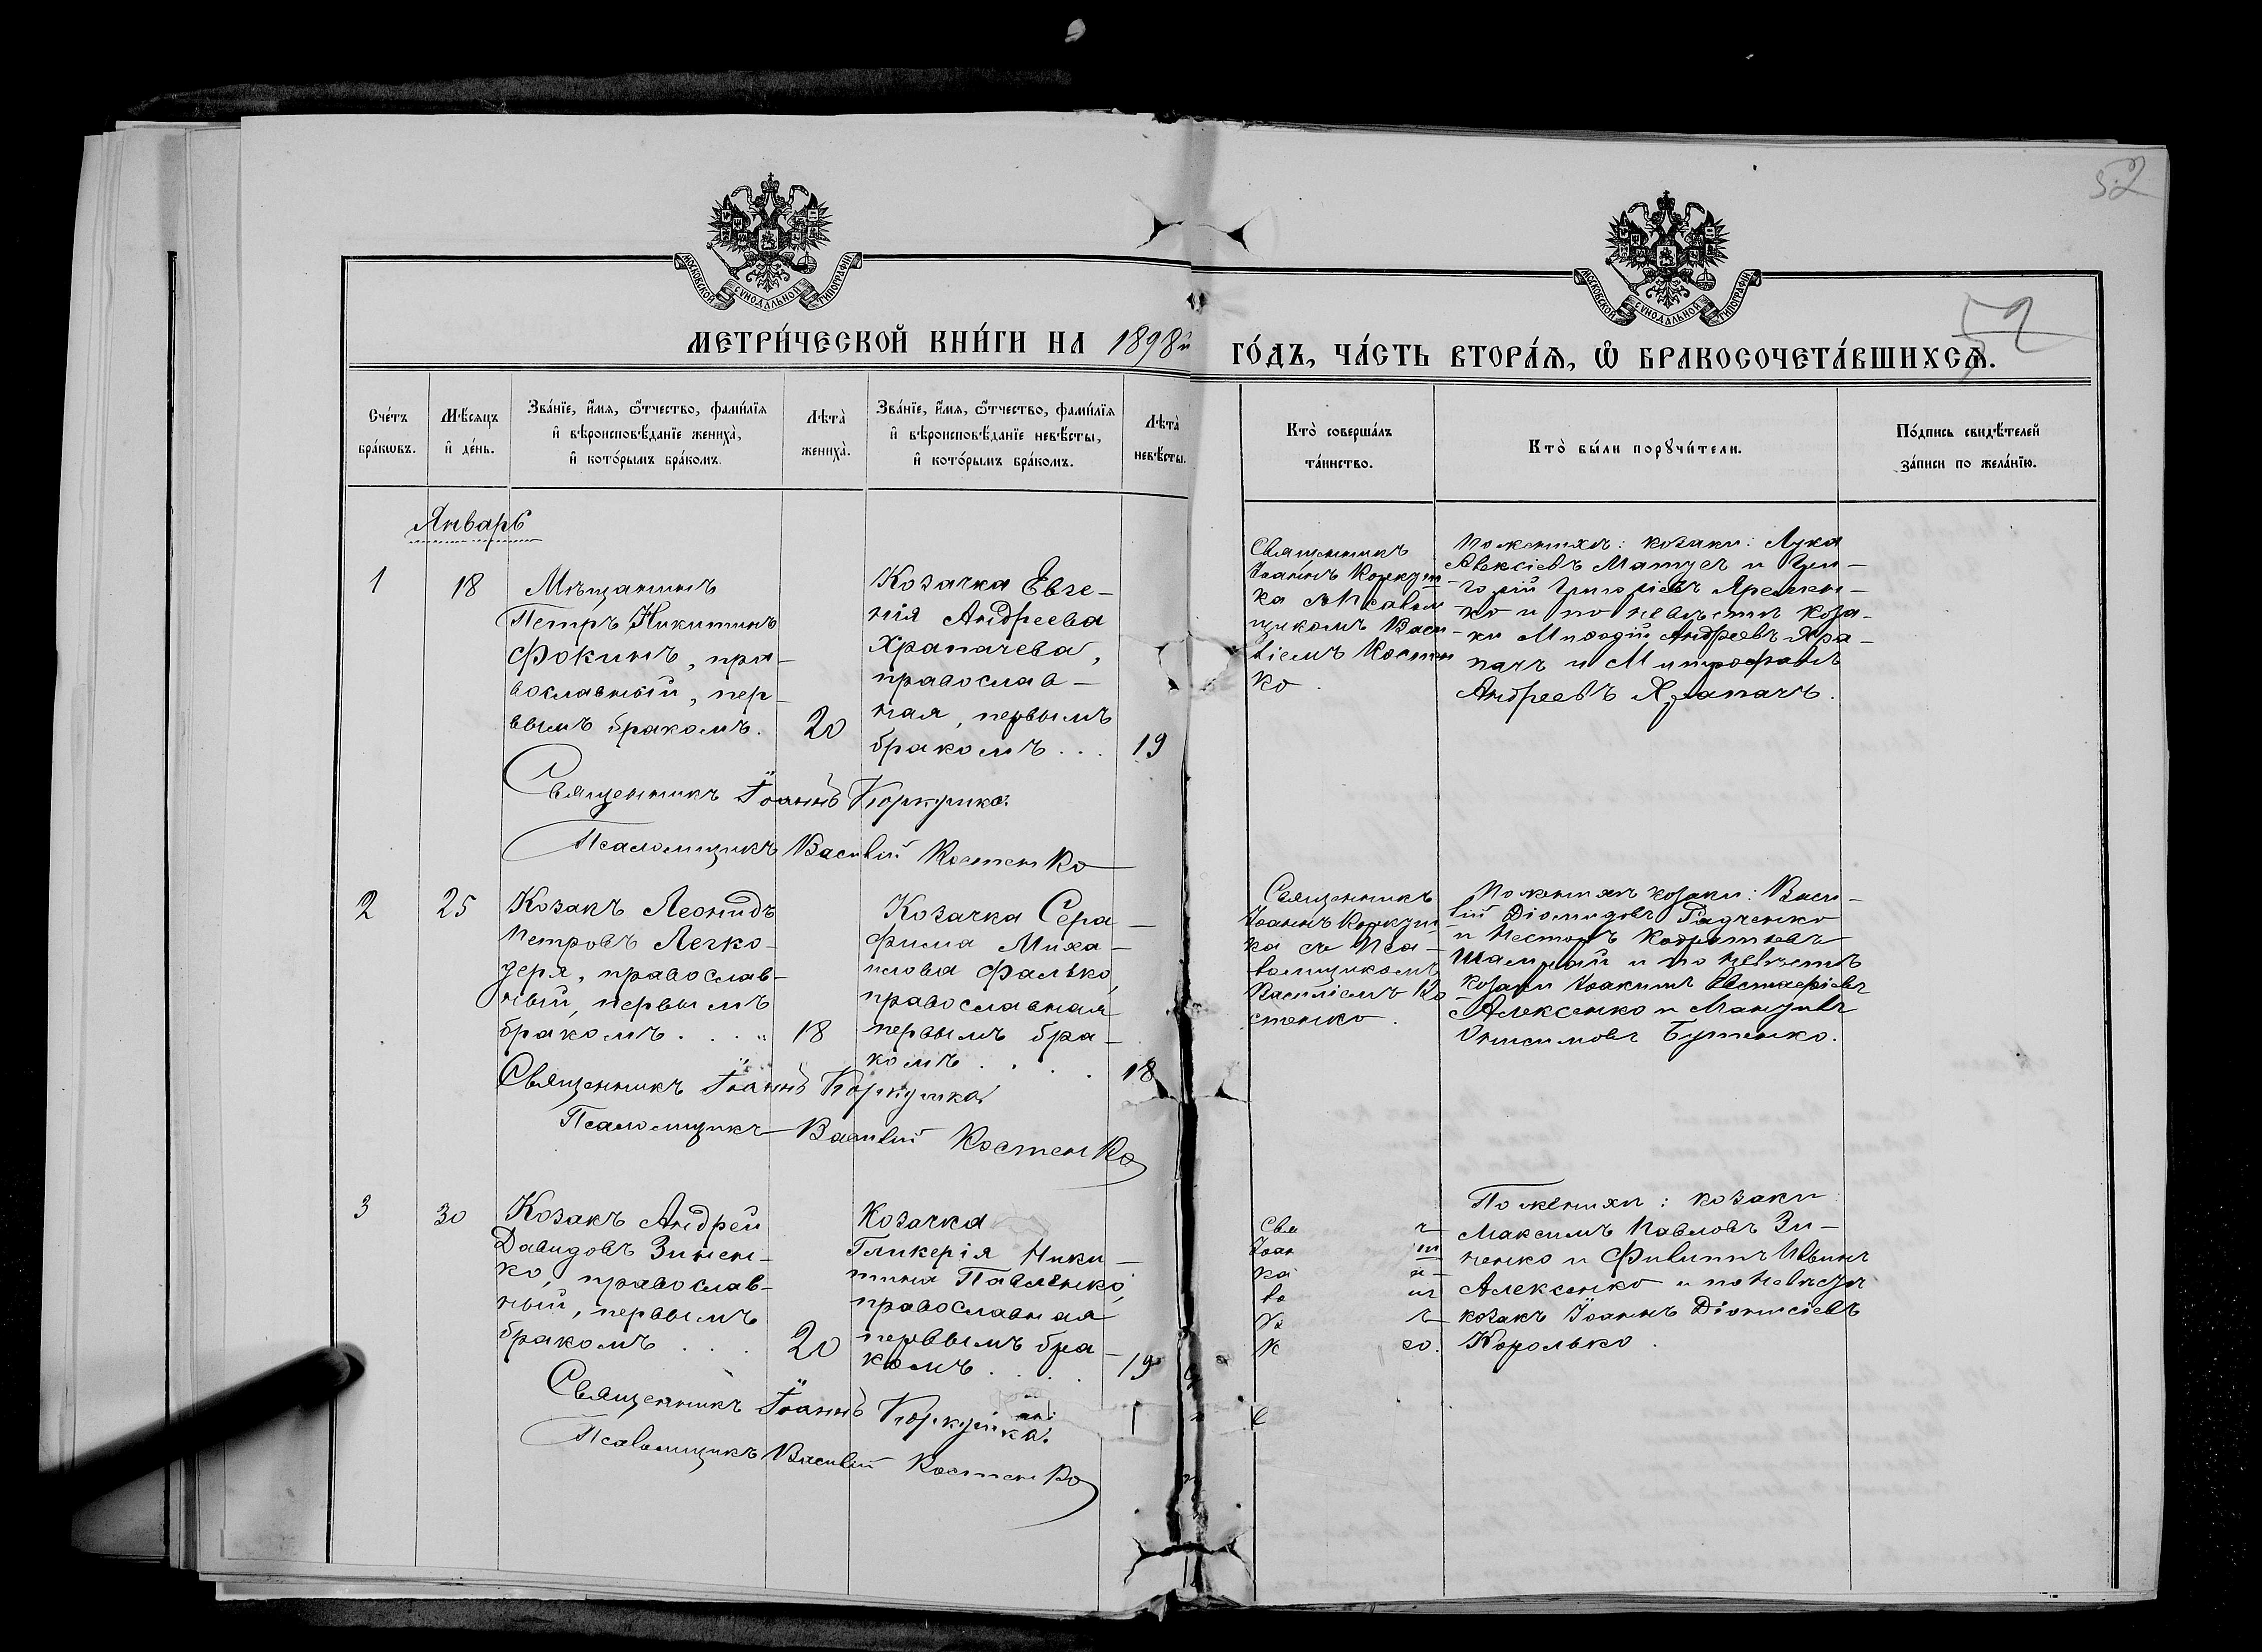 52
МОСКОВСКОЙ СѴНОДАЛЬНОЙ ТИПОГРАФІИ
МОСКОВСКОЙ СѴНОДАЛЬНОЙ ТИПОГРАФІИ
52
МЕТРИ́ЧЕСКОЙ КНИ́ГИ НА 1898й ГО́ДЪ, ЧА́СТЬ ВТОРА́Ѧ, Ѽ БРАКОСОЧЕТА́ВШИХСѦ.
Сче́тъ
бра́кѡвъ.
Мѣ́сяцъ
и҆ де́нь.
Зва́нїе, и҆́мѧ, ѻ҆́тчество, фами́лїѧ
и҆ вѣроисповѣ́данїе жениха̀,
и҆ кото́рымъ бра́комъ.
Лѣта̀
жениха̀.
Зва́нїе, и҆́мѧ, ѻ҆́тчество, фами́лїѧ
и҆ вѣроисповѣ́данїе невѣ́сты,
и҆ кото́рымъ бра́комъ.
Лѣта̀
невѣ́сты.
Кто̀ соверша́лъ
та́инство.
Кто̀ бы́ли порꙋчи́тели.
По́дпись свидѣ́телей
за́писи по жела́нїю.
Январь
1
18
Мѣщанинъ
Петръ Никитинъ
Фокинъ, пра-
вославный, пер-
вымъ бракомъ.
20
Козачка Евге-
нія Андреева
Храпачева,
православ-
ная, первымъ
бракомъ...
19
Священникъ
Іоаннъ Коркуш-
ка съ Псалом-
щикомъ Васи-
ліемъ Костен
ко.
По женихѣ: козаки: Лука
Алексіевъ Мацуех и Гри-
горій Григоріевъ Яремен-
ко и по невѣстѣ коза-
ки Мифодій Андреевъ Хра-
пачъ и Митрофанъ
Андреевъ Храпачъ.
Священникъ Іоаннъ Коркушка
Псаломщикъ Василій Костенко
2
25
Козакъ Леонидъ
Петровъ Легко-
деря, православ-
ный, первымъ
бракомъ...
18
Козачка Сера-
фима Миха-
илова Фалько,
православная
первымъ бра-
комъ....
18
Священникъ
Іоаннъ Коркуш
ка съ Пса-
ломщикомъ
Василіемъ Ко
стенко.
По женихѣ козаки: Васи-
лій Діомидовъ Радченко
и Несторъ Кодратьевъ
и по невѣстѣ
козаки Іоакимъ Евстафіевъ
Алексенко и
Онисимовъ Бутенко.
Священникъ Іоаннъ Коркушка
Псаломщикъ Василій Костенко
3
30
Козакъ Андрей
Давидовъ Зинен-
ко, православ-
ный, первымъ
бракомъ...
20
Козачка
Гликерія Ники-
тина Павленко,
православная
первымъ бра-
комъ....
19
Свя ъ
Іоан ш
ка а-
ло мъ
Ва ъ
К ко.
По женихѣ: козаки:
Максимъ Павловъ Зи-
ненко и Филиппъ Ильинъ
Алексенко и по невѣстѣ
козакъ Іоаннъ Діонисіевъ
Королько.
Священникъ Іоаннъ Коркушка
Псаломщикъ Василій Костенко